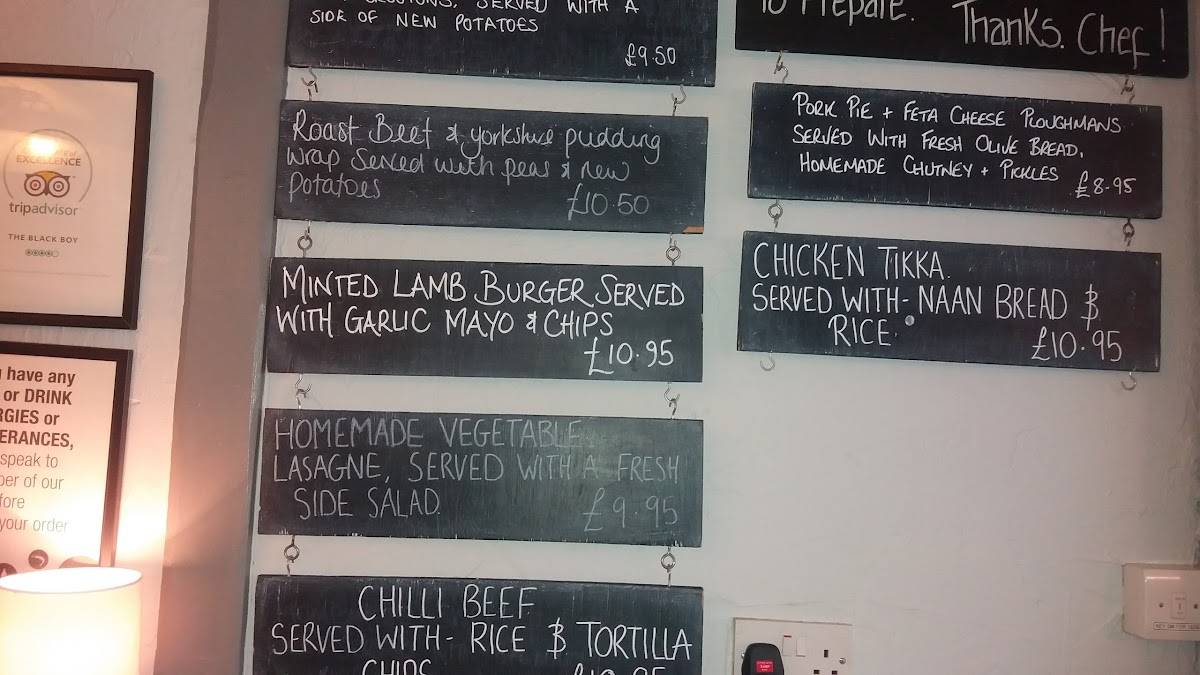 SERVED WITH A
SIDE OF NEW POTATOES
£9.50
Roast Beef & yorkshire pudding
wrap served with peas & new
potatoes
£10.50
MINTED LAMB BURGER SERVED
WITH GARLIC MAYO & CHIPS
£10.95
HOMEMADE VEGETABLE
LASAGNE, SERVED WITH A FRESH
SIDE SALAD.
£9.95
CHILLI BEEF
SERVED WITH- RICE & TORTILLA
CHIPS
to Prepare.
Thanks. Chef!
PORK PIE + FETA CHEESE PLOUGHMANS
SERVED WITH FRESH OLIVE BREAD,
HOMEMADE CHUTNEY + PICKLES
£8.95
CHICKEN TIKKA.
SERVED WITH- NAAN BREAD &
RICE.
£10.95
EXCELLENCE
tripadvisor
THE BLACK BOY
have any
or DRINK
speak to
of our
your order